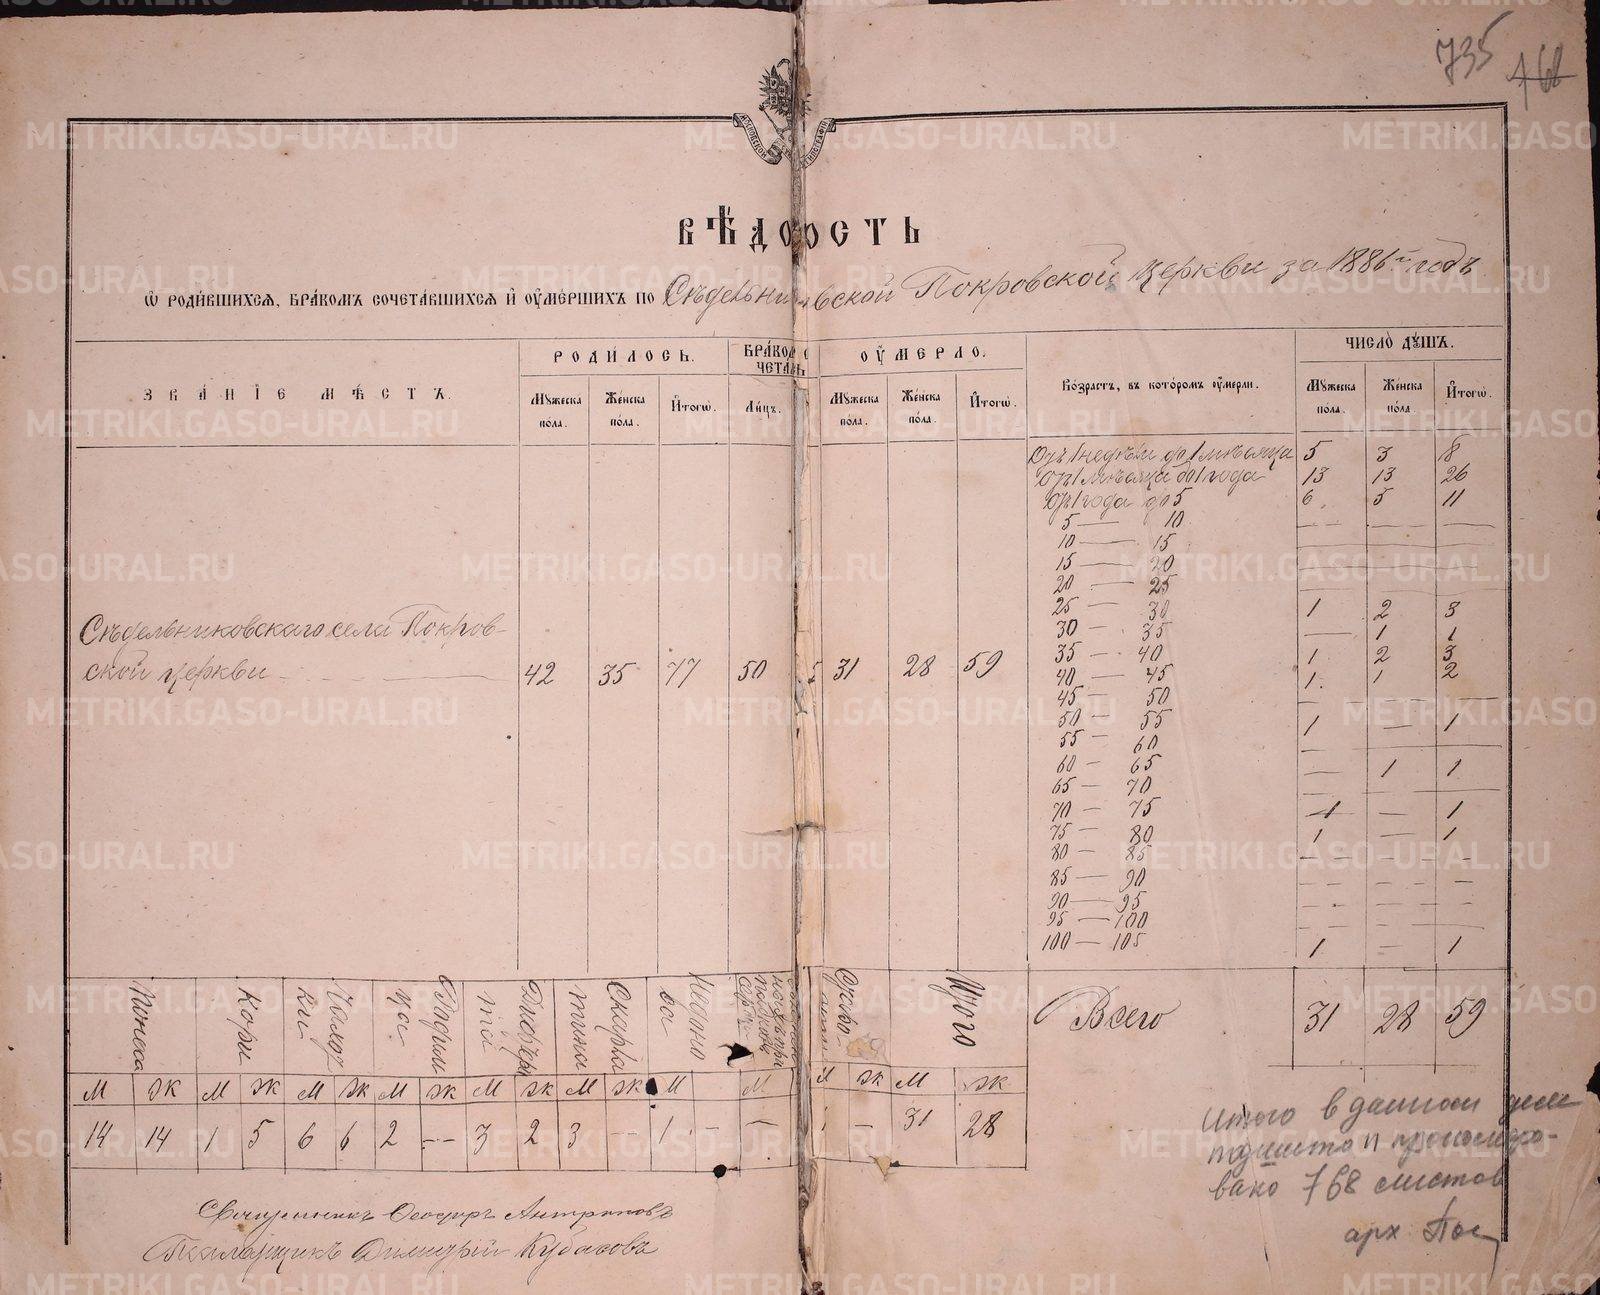 735
768
ВѢДОМОСТЬ
Ѡ РОДИВШИХСЯ, БРАКОМЪ СОЧЕТАВШИХСЯ И ОУМЕРШИХЪ ПО Сѣдельниковской Покровской церкви за 1886й годъ
ЗВАНІЕ МѢСТЪ.
РОДИЛОСЬ.
ОУМЕРЛО.
Возрастъ, въ которомъ оумерли.
ЧИСЛО ДУШЪ.
Мужеска пола.
Женска пола.
Итого.
Лицъ.
Мужеска пола.
Женска пола.
Итого.
Мужеска пола.
Женска пола.
Итого.
Отъ 1 недѣли до 1 мѣсяца 5 3 8
Отъ 1 мѣсяца до 1 года 13 13 26
Отъ 1 года до 5 6 5 11
5 — 10 — — —
10 — 15 — — —
15 — 20 — — —
20 — 25 — — —
25 — 30 1 2 3
30 — 35 — 1 1
35 — 40 1 2 3
40 — 45 1 1 2
45 — 50 — — —
50 — 55 1 — 1
55 — 60 — — —
60 — 65 — 1 1
65 — 70 — — —
70 — 75 1 — 1
75 — 80 1 — 1
80 — 85 — — —
85 — 90 — — —
90 — 95 — — —
95 — 100
100 — 105 1 — 1
Сѣдельниковскаго села Покров-
ской церкви 42 35 77 50 31 28 59
Всего 31 28 59
Поноса
Кори
Скарла
тина
Итого
М Ж М Ж М Ж М Ж М Ж М Ж М М М Ж М Ж
14 14 1 5 6 6 2 -- 3 2 3 — 1 — 31 28
Священникъ Ѳеодоръ Антроповъ
Псаломщикъ Димитрій Кубасовъ
Итого в данном деле
подшито и пронумеро-
вано 768 листов
арх
METRIKI.GASO-URAL.RU